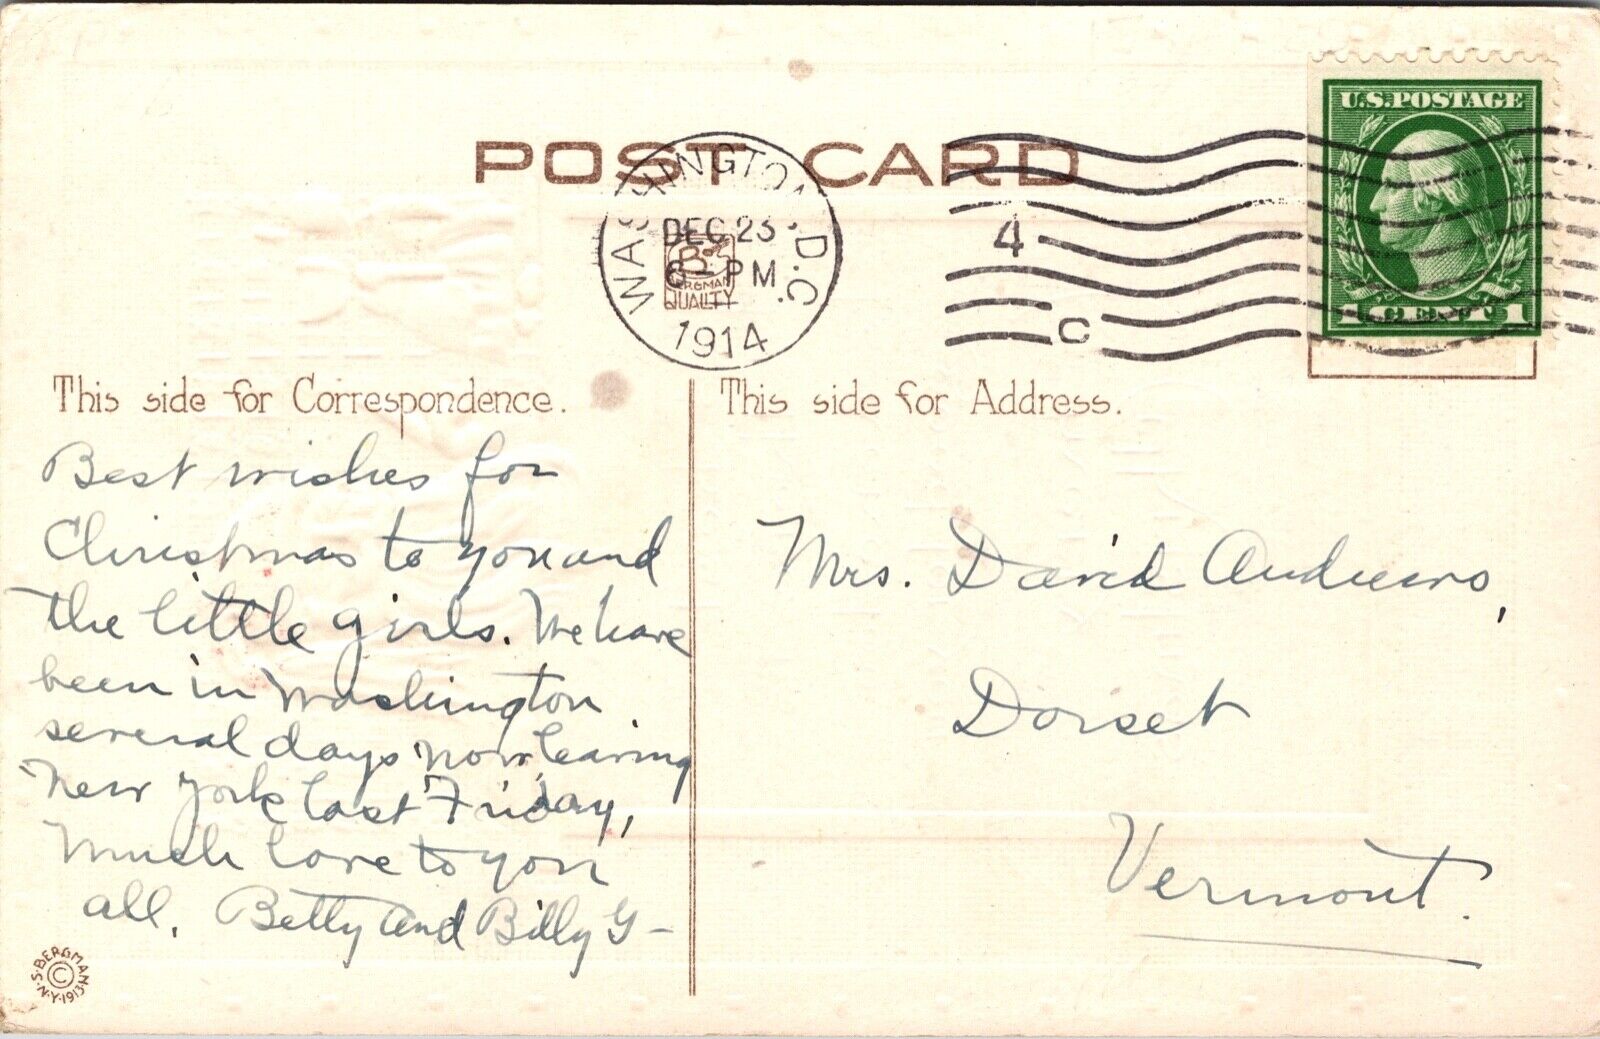 U.S. POSTAGE
1 CENT 1
POST CARD
WASHINGTON, D.C.
DEC 23
6 - PM
1914
4
C
B
BERGMAN
QUALITY
This side for Correspondence.
Best wishes for
Christmas to you and
the little girls. We have
been in Washington
several days now, leaving
New York last Friday,
Much love to you
all. Betty and Billy G-
This side for Address.
Mrs. David Andrews,
Dorset
Vermont.
S. BERGMAN N.Y. 1913 ©